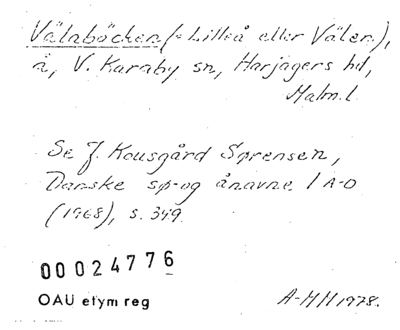 Välabäcken (= Lilleå eller Välen),
å, V. Karaby sn, Harjagers hd,
Malm. l.
Se J. Kousgård Sørensen,
Danske sø- og ånavne 1 A-D
(1968), s. 349.
00024776
OAU etym reg
A-MH 1978.